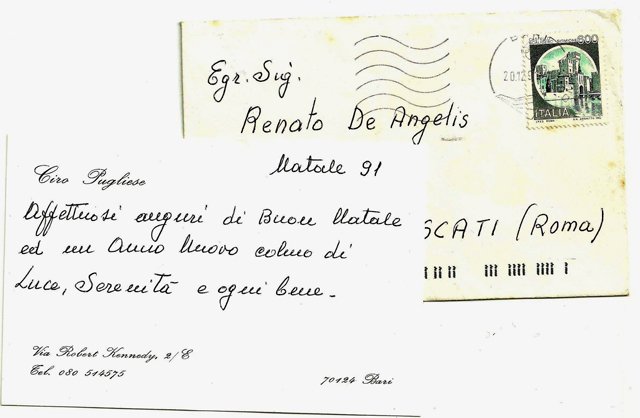 BARI
20.12.9
600
ITALIA
Egr. Sig.
Renato De Angelis
SCATI (Roma)
Natale 91
Ciro Pugliese
Affettuosi auguri di Buon Natale
ed un Anno Nuovo colmo di
Luce, Serenità e ogni bene.
Via Robert Kennedy, 2/E
Tel. 080 514575
70124 Bari